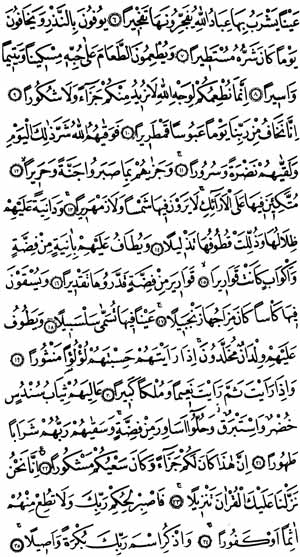 عَيْنًا يَشْرَبُ بِهَا عِبَادُ اللَّهِ يُفَجِّرُونَهَا تَفْجِيرًا ﴿٦﴾ يُوفُونَ بِالنَّذْرِ وَيَخَافُونَ
يَوْمًا كَانَ شَرُّهُ مُسْتَطِيرًا ﴿٧﴾ وَيُطْعِمُونَ الطَّعَامَ عَلَىٰ حُبِّهِ مِسْكِينًا وَيَتِيمًا
وَأَسِيرًا ﴿٨﴾ إِنَّمَا نُطْعِمُكُمْ لِوَجْهِ اللَّهِ لَا نُرِيدُ مِنْكُمْ جَزَاءً وَلَا شُكُورًا ﴿٩﴾
إِنَّا نَخَافُ مِنْ رَبِّنَا يَوْمًا عَبُوسًا قَمْطَرِيرًا ﴿١٠﴾ فَوَقَاهُمُ اللَّهُ شَرَّ ذَٰلِكَ الْيَوْمِ
وَلَقَّاهُمْ نَضْرَةً وَسُرُورًا ﴿١١﴾ وَجَزَاهُمْ بِمَا صَبَرُوا جَنَّةً وَحَرِيرًا ﴿١٢﴾
مُتَّكِئِينَ فِيهَا عَلَى الْأَرَائِكِ لَا يَرَوْنَ فِيهَا شَمْسًا وَلَا زَمْهَرِيرًا ﴿١٣﴾ وَدَانِيَةً عَلَيْهِمْ
ظِلَالُهَا وَذُلِّلَتْ قُطُوفُهَا تَذْلِيلًا ﴿١٤﴾ وَيُطَافُ عَلَيْهِمْ بِآنِيَةٍ مِنْ فِضَّةٍ
وَأَكْوَابٍ كَانَتْ قَوَارِيرَا ﴿١٥﴾ قَوَارِيرَ مِنْ فِضَّةٍ قَدَّرُوهَا تَقْدِيرًا ﴿١٦﴾ وَيُسْقَوْنَ
فِيهَا كَأْسًا كَانَ مِزَاجُهَا زَنْجَبِيلًا ﴿١٧﴾ عَيْنًا فِيهَا تُسَمَّىٰ سَلْسَبِيلًا ﴿١٨﴾ وَيَطُوفُ
عَلَيْهِمْ وِلْدَانٌ مُخَلَّدُونَ إِذَا رَأَيْتَهُمْ حَسِبْتَهُمْ لُؤْلُؤًا مَنْثُورًا ﴿١٩﴾
وَإِذَا رَأَيْتَ ثَمَّ رَأَيْتَ نَعِيمًا وَمُلْكًا كَبِيرًا ﴿٢٠﴾ عَالِيَهُمْ ثِيَابُ سُنْدُسٍ
خُضْرٌ وَإِسْتَبْرَقٌ وَحُلُّوا أَسَاوِرَ مِنْ فِضَّةٍ وَسَقَاهُمْ رَبُّهُمْ شَرَابًا
طَهُورًا ﴿٢١﴾ إِنَّ هَٰذَا كَانَ لَكُمْ جَزَاءً وَكَانَ سَعْيُكُمْ مَشْكُورًا ﴿٢٢﴾ إِنَّا نَحْنُ
نَزَّلْنَا عَلَيْكَ الْقُرْآنَ تَنْزِيلًا ﴿٢٣﴾ فَاصْبِرْ لِحُكْمِ رَبِّكَ وَلَا تُطِعْ مِنْهُمْ
آثِمًا أَوْ كَفُورًا ﴿٢٤﴾ وَاذْكُرِ اسْمَ رَبِّكَ بُكْرَةً وَأَصِيلًا ﴿٢٥﴾